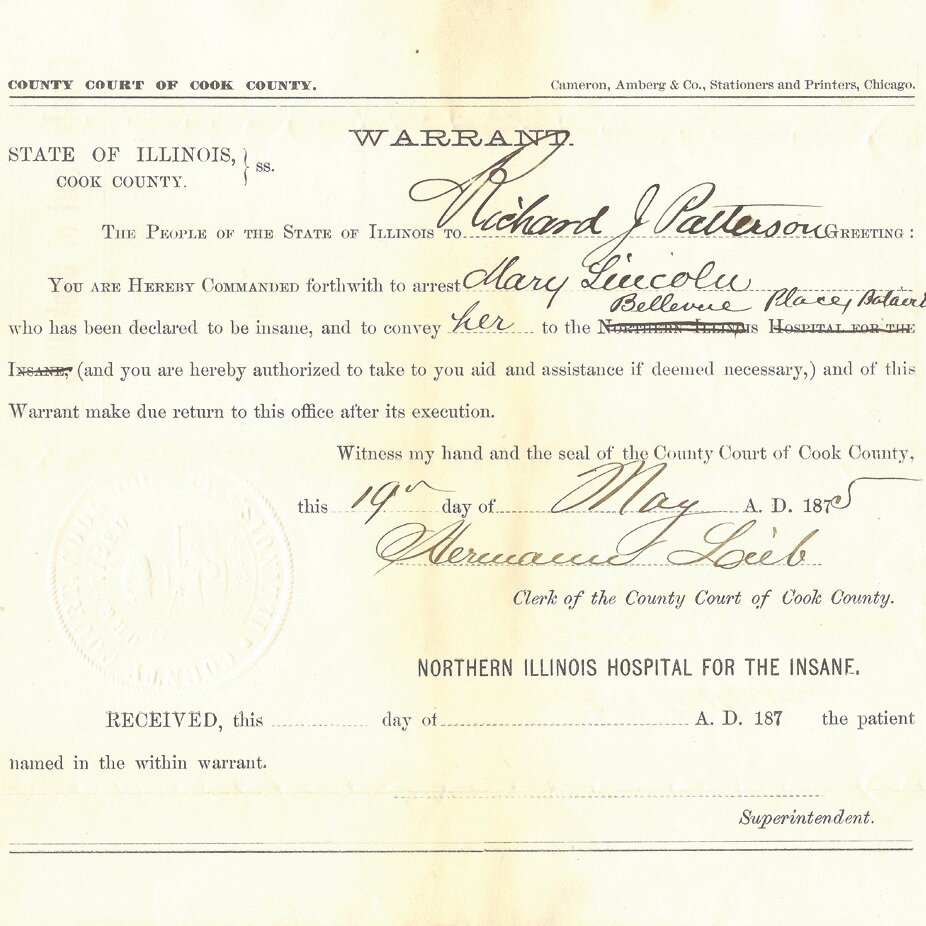 COUNTY COURT OF COOK COUNTY. Cameron, Amberg & Co., Stationers and Printers, Chicago.
WARRANT.
STATE OF ILLINOIS, } ss.
COOK COUNTY.
THE PEOPLE OF THE STATE OF ILLINOIS TO Richard J Patterson GREETING:
YOU ARE HEREBY COMMANDED forthwith to arrest Mary Lincoln
Bellevue Place, Batavi
who has been declared to be insane, and to convey her to the NORTHERN ILLINOIS HOSPITAL FOR THE
INSANE, (and you are hereby authorized to take to you aid and assistance if deemed necessary,) and of this
Warrant make due return to this office after its execution.
Witness my hand and the seal of the County Court of Cook County,
this 19th day of May A. D. 1875
Hermann Lieb
Clerk of the County Court of Cook County.
NORTHERN ILLINOIS HOSPITAL FOR THE INSANE.
RECEIVED, this day of A. D. 187 the patient
named in the within warrant.
Superintendent.